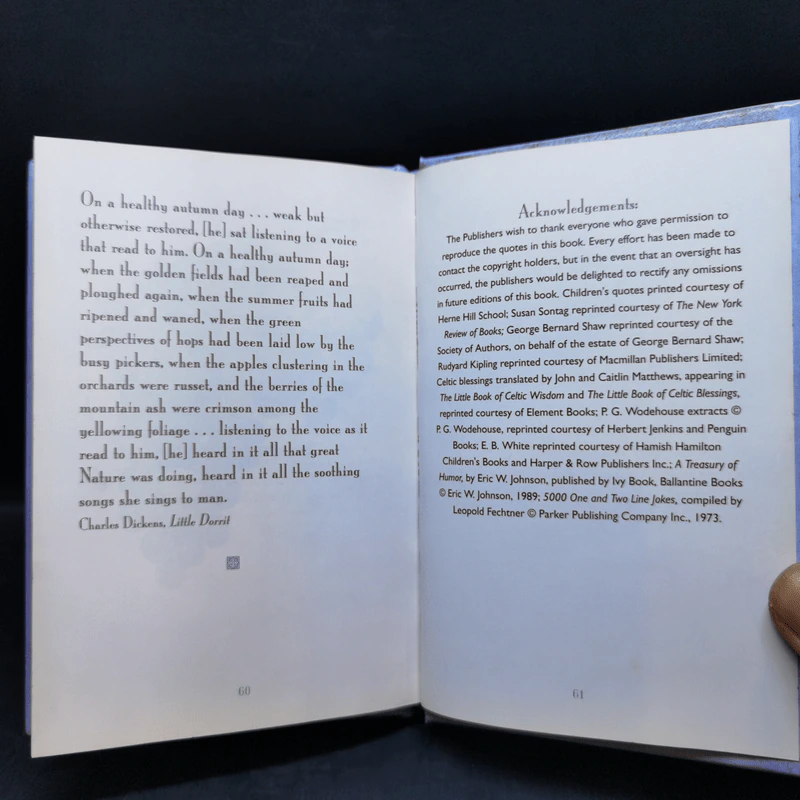 On a healthy autumn day . . . weak but
otherwise restored, [he] sat listening to a voice
that read to him. On a healthy autumn day;
when the golden fields had been reaped and
ploughed again, when the summer fruits had
ripened and waned, when the green
perspectives of hops had been laid low by the
busy pickers, when the apples clustering in the
orchards were russet, and the berries of the
mountain ash were crimson among the
yellowing foliage . . . listening to the voice as it
read to him, [he] heard in it all that great
Nature was doing, heard in it all the soothing
songs she sings to man.
Charles Dickens, Little Dorrit
60
Acknowledgements:
The Publishers wish to thank everyone who gave permission to
reproduce the quotes in this book. Every effort has been made to
contact the copyright holders, but in the event that an oversight has
occurred, the publishers would be delighted to rectify any omissions
in future editions of this book. Children's quotes printed courtesy of
Herne Hill School; Susan Sontag reprinted courtesy of The New York
Review of Books; George Bernard Shaw reprinted courtesy of the
Society of Authors, on behalf of the estate of George Bernard Shaw;
Rudyard Kipling reprinted courtesy of Macmillan Publishers Limited;
Celtic blessings translated by John and Caitlin Matthews, appearing in
The Little Book of Celtic Wisdom and The Little Book of Celtic Blessings,
reprinted courtesy of Element Books; P. G. Wodehouse extracts ©
P. G. Wodehouse, reprinted courtesy of Herbert Jenkins and Penguin
Books; E. B. White reprinted courtesy of Hamish Hamilton
Children's Books and Harper & Row Publishers Inc.; A Treasury of
Humor, by Eric W. Johnson, published by Ivy Book, Ballantine Books
© Eric W. Johnson, 1989; 5000 One and Two Line Jokes, compiled by
Leopold Fechtner © Parker Publishing Company Inc., 1973.
61